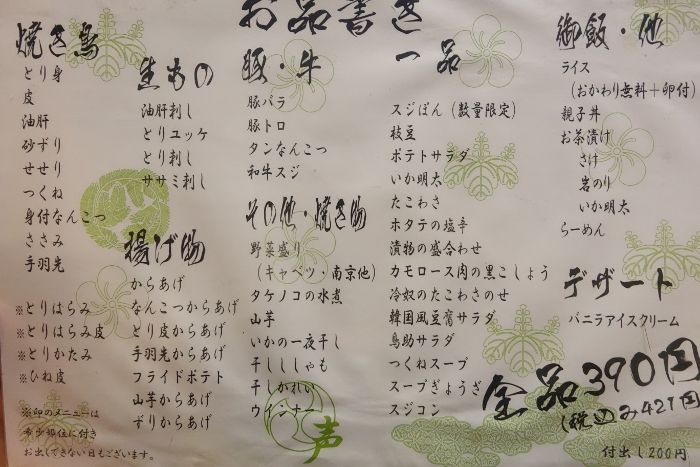 お品書き
焼き鳥
とり身
皮
油肝
砂ずり
せせり
つくね
身付なんこつ
ささみ
手羽先
※とりはらみ
※とりはらみ皮
※とりかたみ
※ひね皮
※印のメニューは
希少部位に付き
お出しできない日もございます。
生もの
油肝刺し
とりユッケ
とり刺し
ササミ刺し
揚げ物
からあげ
なんこつからあげ
とり皮からあげ
手羽先からあげ
フライドポテト
山芋からあげ
ずりからあげ
豚・牛
豚バラ
豚トロ
タンなんこつ
和牛スジ
その他・焼き物
野菜盛り
(キャベツ・南京他)
タケノコの水煮
山芋
いかの一夜干し
干ししゃも
干しかれい
ウインナー
声
一品
スジぽん(数量限定)
枝豆
ポテトサラダ
いか明太
たこわさ
ホタテの塩辛
漬物の盛合わせ
カモロース肉の黒こしょう
冷奴のたこわさのせ
韓国風豆腐サラダ
鳥助サラダ
つくねスープ
スープぎょうざ
スジコン
御飯・他
ライス
(おかわり無料+卵付)
親子丼
お茶漬け
さけ
岩のり
いか明太
らーめん
デザート
バニラアイスクリーム
全品390円
(税込み421円)
付出し200円